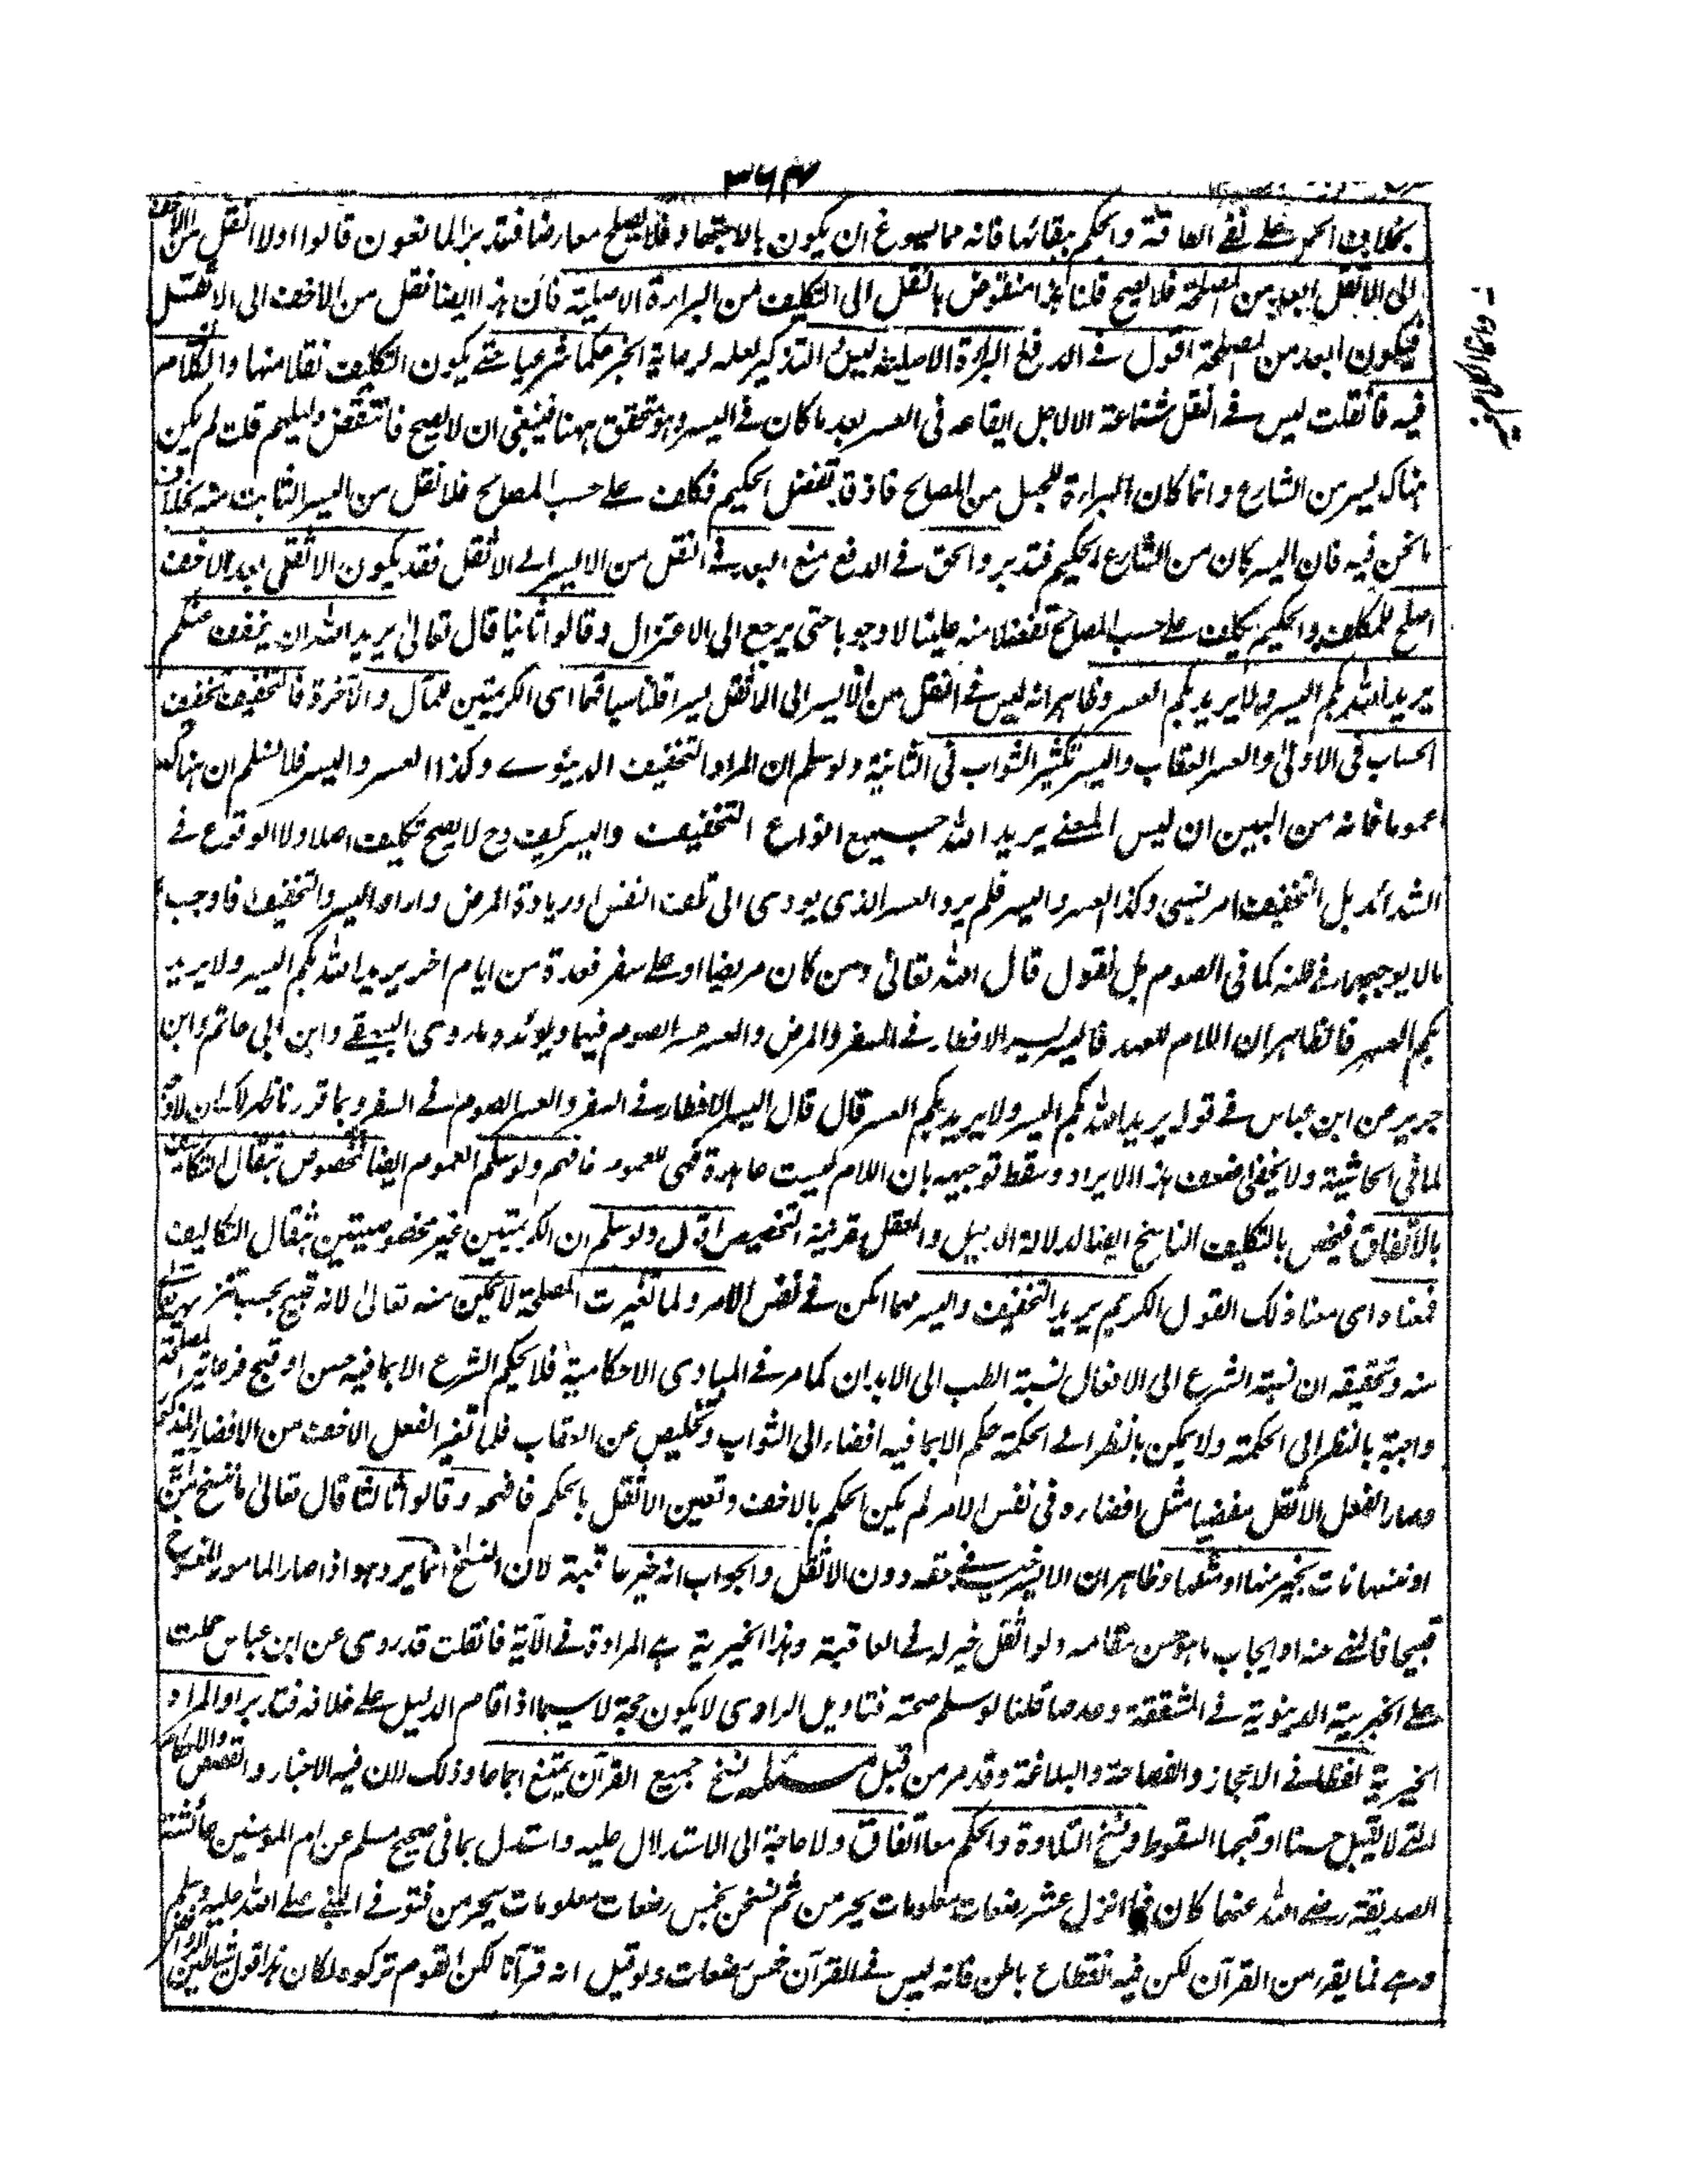 ٣٦٤
بخلاف الحمل على نفي الطاقة والحكم ببقائها فانه مما يسوغ ان يكون بالاجتهاد فلا يصلح معارضا فتدبر المانعون قالوا اولا النقل من الاخف
الى الاثقل ابعد من المصلحة فلا يصح قلنا هذا منقوض بالنقل الى التكليف من البراءة الاصلية فان هذا ايضا نقل من الاخف الى الاثقل
فيكون ابعد من المصلحة اقول في الدفع البراءة الاصلية ليس التذكير لعله لرعاية الخبر حكما شرعيا حتى يكون التكليف نقلا منها والكلام
فيه فان قلت ليس في النقل شناعة الا لاجل ايقاعه فى العسر بعد ما كان في اليسر وهو متحقق ههنا فينبغي ان لا يصح فانتقض دليلهم قلت لم يكن
هناك يسر من الشارع وانما كان البراءة للجهل من المصالح فاذن تفضل الحكيم فكلف على حسب المصالح فلا نقل من اليسر الثابت منه بخلاف
ما نحن فيه فان اليسر كان من الشارع الحكيم فتدبر والحق في الدفع منع البعد في النقل من الايسر الى الاثقل فقد يكون الاثقل بعد الاخف
اصلح للمكلف والحكيم يكلف على حسب المصالح تفضلا منه علينا لا وجوبا حتى يرجع الى الاعتزال وقالوا ثانيا قال تعالى يريد الله ان يخفف عنكم
يريد الله بكم اليسر ولا يريد بكم العسر وظاهر انه ليس في النقل من الايسر الى الاثقل يسر قلنا سياقهما اى الكريمتين للمآل والآخرة فالتخفيف تخفيف
الحساب فى الاولى والعسر العقاب واليسر تكثير الثواب فى الثانية ولو سلم ان المراد التخفيف الدنيوى وكذا العسر واليسر فلا نسلم ان هناك
عموما فانه من البين ان ليس المعنى يريد الله جميع انواع التخفيف واليسر كيف وح لا يصح تكليف اصلا ولا الوقوع في
الشدائد بل التخفيف امر نسبى وكذا العسر واليسر فلم يرد العسر الذى يودى الى تلف النفس او زيادة المرض واراد اليسر والتخفيف فاوجب
ما لا يوجبها في ظنه كما فى الصوم بل نقول قال الله تعالى ومن كان مريضا او على سفر فعدة من ايام اخر يريد الله بكم اليسر ولا يريد
بكم العسر فالظاهر ان اللام للعهد فاليسر يسر الافطار في السفر والمرض والعسر عسر الصوم فيهما ويؤيده ما روى البيهقى وابن ابى حاتم وابن
جرير عن ابن عباس في قوله يريد الله بكم اليسر ولا يريد بكم العسر قال قال اليسر الافطار في السفر والعسر الصوم في السفر وبما قررنا ظهر لك ان
لما فى الحاشية ولا يخفى ضعف هذا الايراد وسقط توجيهه بان اللام ليست عاهدة فهى للعموم فافهم ولو سلم العموم ايضا مخصوص بثقال التكاليف
بالاتفاق فيخص بالتكليف الناسخ ايضا لدلالة الدليل والعقل قرينة التخصيص اقول ولو سلم ان الكريمتين غير مخصوصيتين بثقال التكاليف
فمعناه اى معنا ذلك القول الكريم يريد التخفيف واليسر مهما امكن في نفس الامر ولما تغيرت المصلحة لا يمكن منه تعالى لانه قبيح يجب تنزيهه
منه وتحقيقه ان نسبة الشرع الى الافعال نسبة الطب الى الابدان كما مر في المبادى الاحكامية فلا يحكم الشرع الا بما فيه حسن او قبح فرعاية المصلحة
واجبة بالنظر الى الحكمة ولا يمكن بالنظر الى الحكمة حكم الا بما فيه افضاء الى الثواب وتخليص عن العقاب فلما تغير الفعل الاخف من الافضاء المذكور
وصار الفعل الاثقل مفضيا مثل افضاءه وفى نفس الامر لم يكن الحكم بالاخف وتعين الاثقل بالحكم فافهم وقالوا ثالثا قال تعالى ما ننسخ من آية
او ننسها نات بخير منها او مثلها وظاهر ان الايسر خير في حقه دون الاثقل والجواب انه خير عاقبة لان النسخ انما يرد هو اذا صار المامور المنسوخ
قبيحا فالنهى عنه او ايجاب ما هو حسن مقامه ولو اثقل خير له في العاقبة وهذا الخيرية هى المرادة في الآية فان قلت قد روى عن ابن عباس حملت
على الخيرية الدنيوية في المشقة وعدمها قلنا لو سلم صحته فتاويل الراوى لا يكون حجة لا سيما اذا قام الدليل على خلافه فتدبر او المراد
الخيرية لفظا في الاعجاز والفصاحة والبلاغة وقد مر من قبل مسئلة نسخ جميع القرآن يمتنع اجماعا وذلك لان فيه الاخبار والقصص والاحكام
التى لا يقبل حسنها او قبحها السقوط ونسخ التلاوة والحكم معا اتفاق ولا حاجة الى الاستدلال عليه واستدل بما فى صحيح مسلم عن ام المومنين عائشة
الصديقة رضى الله عنها كان فيما انزل عشر رضعات معلومات يحرمن ثم نسخن بخمس رضعات معلومات يحرمن فتوفى النبى صلى الله عليه وسلم
وهى فيما يقرء من القرآن لكن فيه انقطاع باطن فانه ليس في القرآن خمس رضعات ولو قيل انه قرآنا لكن القوم تركوه لكان هذا قول شياطين